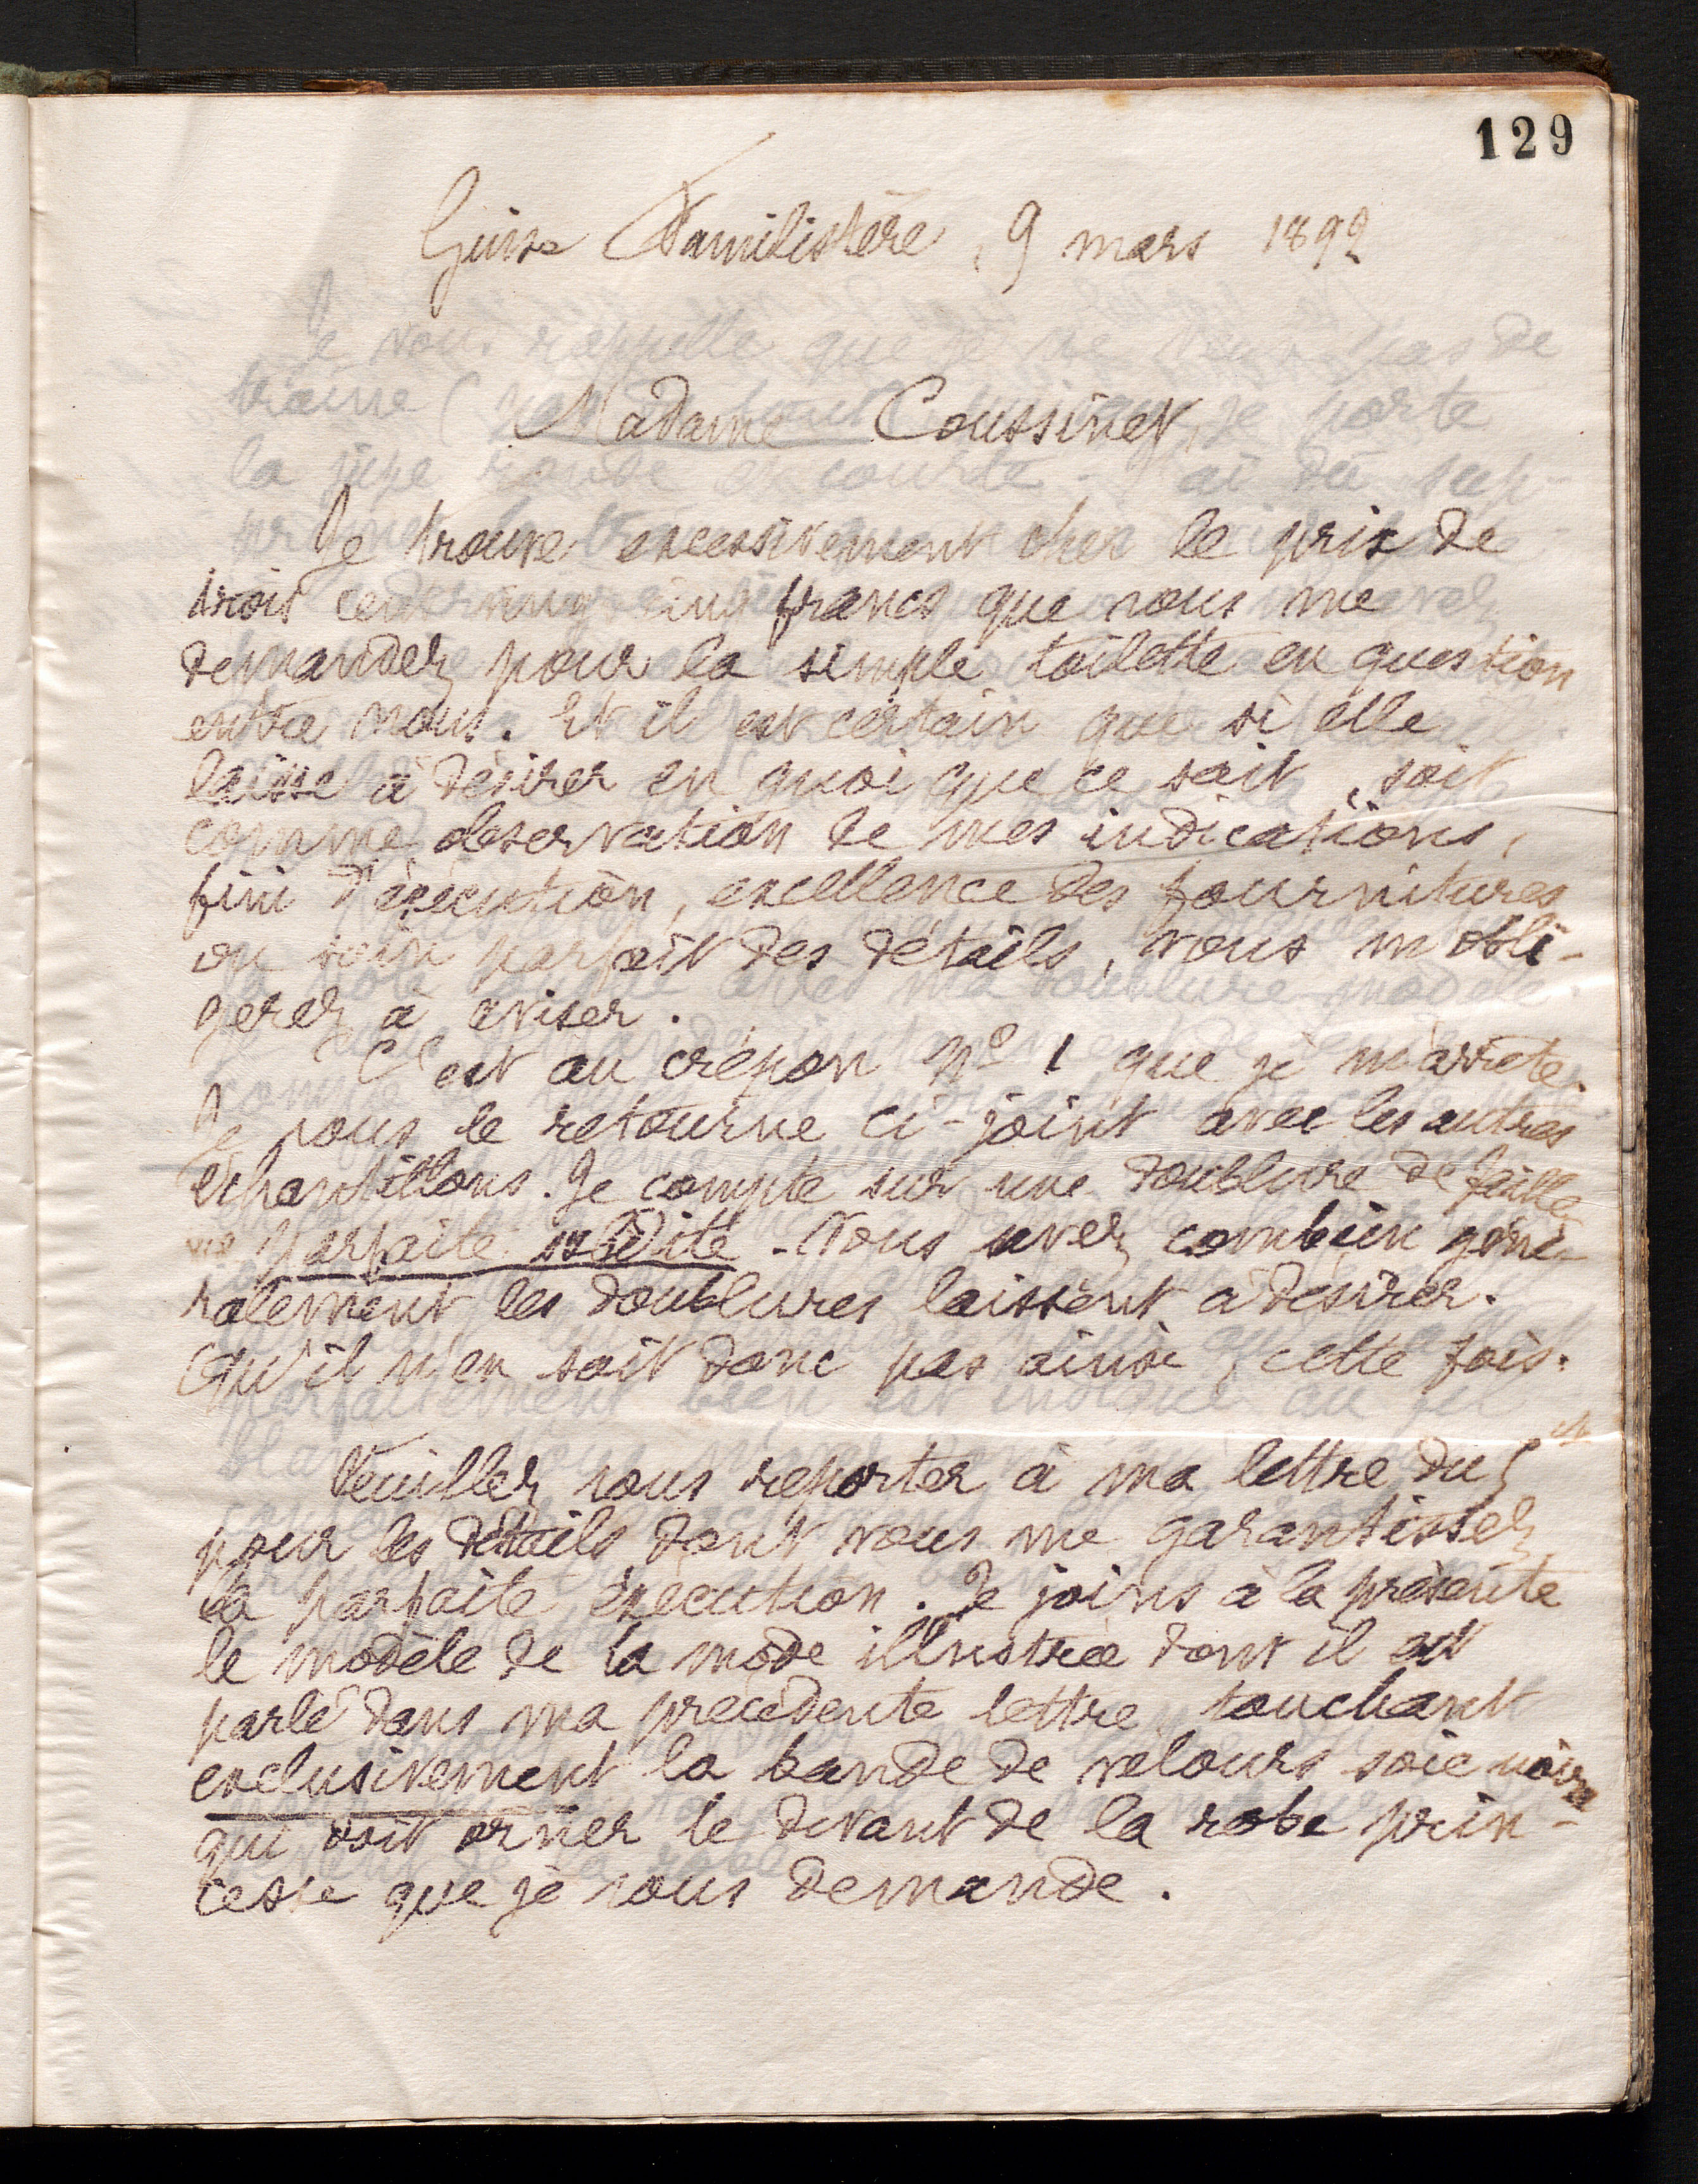 129
Guise Familistère, 9 mars 1892
Madame Coussinet,
Je trouve excessivement cher le prix de
trois cent vingt cinq francs que vous me
demandez pour la simple toilette en question
entre nous. Et il est certain que si elle
laisse à désirer en quoi que ce soit, soit
comme observation de mes indications,
fini d'exécution, excellence des fournitures
ou soin parfait des détails, vous m'obli-
gerez à aviser.
C'est au crépon No 1 que je m'arrête.
Je vous le retourne ci-joint avec les autres
échantillons. Je compte sur une doublure de faille
parfaite solidité. Vous savez combien géné-
ralement les doublures laissent à désirer.
Qu'il n'en soit donc pas ainsi, cette fois.
Veuillez vous reporter à ma lettre du
pour les détails dont vous me garantissez
la parfaite exécution. Je joins à la présente
le modèle de la mode illustrée dont il est
parlé dans ma précédente lettre, touchant
exclusivement la bande de velours soie noire
qui doit orner le devant de la robe prin-
cesse que je vous demande.